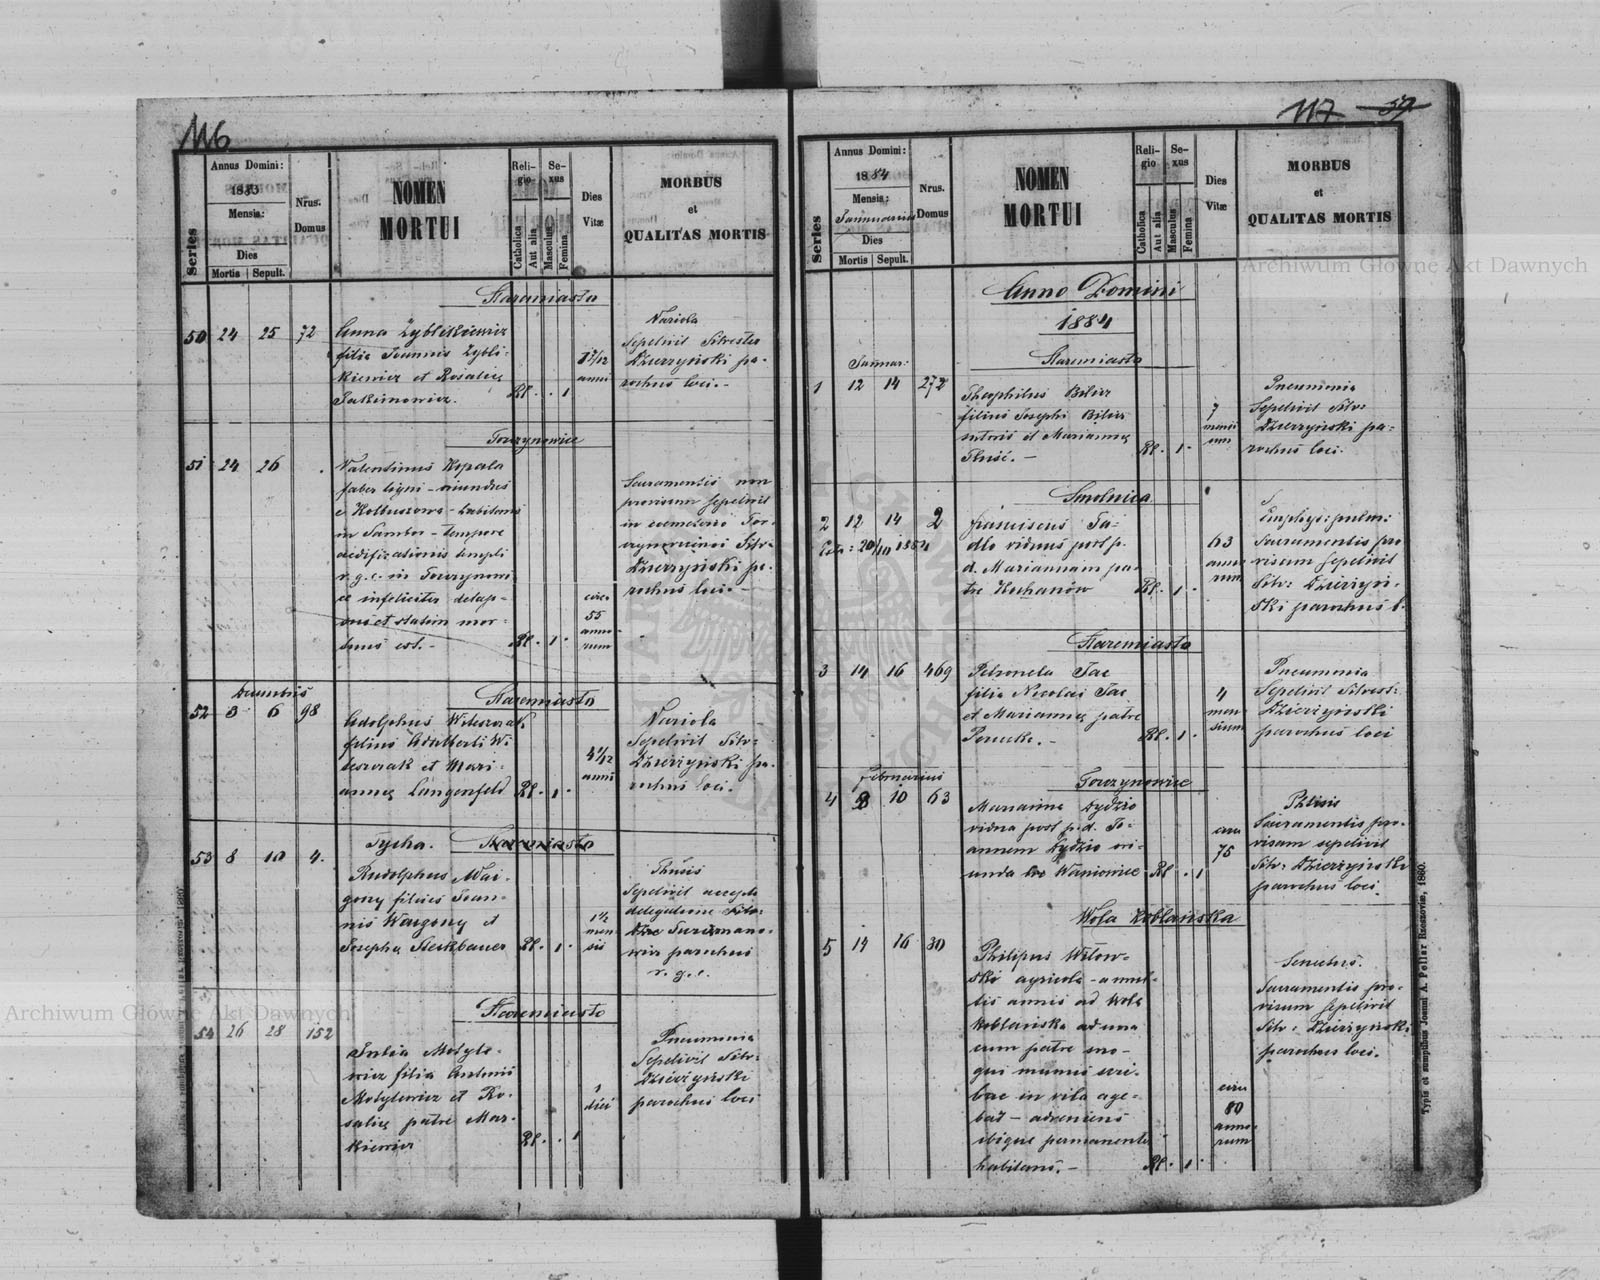 116
Series
Annus Domini:
1883
Mensis:
Dies
Mortis Sepult.
Nrus. Domus
NOMEN
MORTUI
Religio
Catholica
Aut alia
Sexus
Masculus
Femina
Dies
Vitæ
MORBUS
et
QUALITAS MORTIS
Staremiasto
50 24 25 72
Anna Zyblikiewicz
filia Joannis Zybli-
kiewicz et Rosaliæ
Jakimowicz.
Rl. . 1
anni
Variola
Sepelivit Silvester
Dzierzyński pa-
rochus loci.-
Torczynowice
51 24 26 .
Valentinus Kopala
faber ligni - oriundus
e Kolbuszowa - habitans
in Sambor - tempore
aedificationis templi
r. g. c. in Torczynowi-
ce infeliciter delap-
sus et statim mor-
tuus est.-
Rl. 1.
circ.
55
anno-
rum
Sacramentis non
provisum sepelivit
in cemeterio Tor-
czynovicensi Silv:
Dzierzyński pa-
rochus loci.-
Decembris
Staremiasto
52 3 6 98
Adolphus Witeszczak
filius Adalberti Wi-
teszczak et Mari-
annæ Langenfeld
Rl. 1.
4 1/12
anni
Variola
Sepelivit Silv:
Dzierzyński pa-
rochus loci.
Tycha. Staremiasto
53 8 10 4.
Rudolphus Wai-
gony filius Joan-
nis Waygony et
Josepha Steckbauer
Rl. 1.
1 1/2
men-
sis
Sepelivit accepta
delegatione Silv:
Dzie Turzmano-
wicz parochus
r. g. c.
Staremiasto
54 26 28 152
Julia Motyle-
wicz filia Antonii
Motylewicz et Ro-
saliæ patre Mar-
kiewicz
Rl. . 1
1
diei
Pneumonia
Sepelivit Silv:
Dzierzyński
parochus loci
117 59
Series
Annus Domini:
1884
Mensis:
Januarius
Dies
Mortis Sepult.
Nrus.
Domus
NOMEN
MORTUI
Religio
Catholica
Aut alia
Sexus
Masculus
Femina
Dies
Vitæ
MORBUS
et
QUALITAS MORTIS
Anno Domini
1884
Staremiasto
Januar:
1 12 14 272
Theophilus Bilicz
filius Josephi Bilicz
sutoris et Mariannæ
Tłuść.-
Rl. 1.
7
mensi
um
Pneumonia
Sepelivit Silv:
Dzierzyński pa-
rochus loci.
Smolnica
2 12 14 2
Franciscus Ja-
dło viduus post p.
d. Mariannam pa-
tre Kochanów
Rl. 1.
63
anno
rum
Emphys: pulm:
Sacramentis pro
visum sepelivit
Silv: Dzierzyń-
ski parochus l.
Staremiasto
3 14 16 469
Petronela Tac
filia Nicolai Tac
et Mariannæ patre
Rl. 1.
4
men
sium
Pneumonia
Sepelivit Silvest:
Dzierzyński
parochus loci
Februarius
Torczynowice
4 8 10 63
Marianna Dydzio
vidua post p. d. Jo-
annem Dydzio ori-
unda loc Waniowice
Rl. . 1
circa
75
Phtisis
Sacramentis pro-
visam sepelivit
Silv: Dzierzyński
parochus loci.
Wola Koblańska
5 14 16 30
Philipus Witow-
ski agricola - annul-
tis annis ad Wola
Koblańska ad una
cum patre suo -
qui munus scri-
bae in vila age-
bat - adveniens
ibique permanenter
habitans.-
Rl. 1.
circa
80
anno-
rum
Senectus.
Sacramentis pro-
visum sepelivit
Silv: Dzierzyński
parochus loci.
Typis et sumptibus Joanni A. Pellar Rzeszoviæ, 1880.
Archiwum Główne Akt Dawnych
Archiwum Główne Akt Dawnych